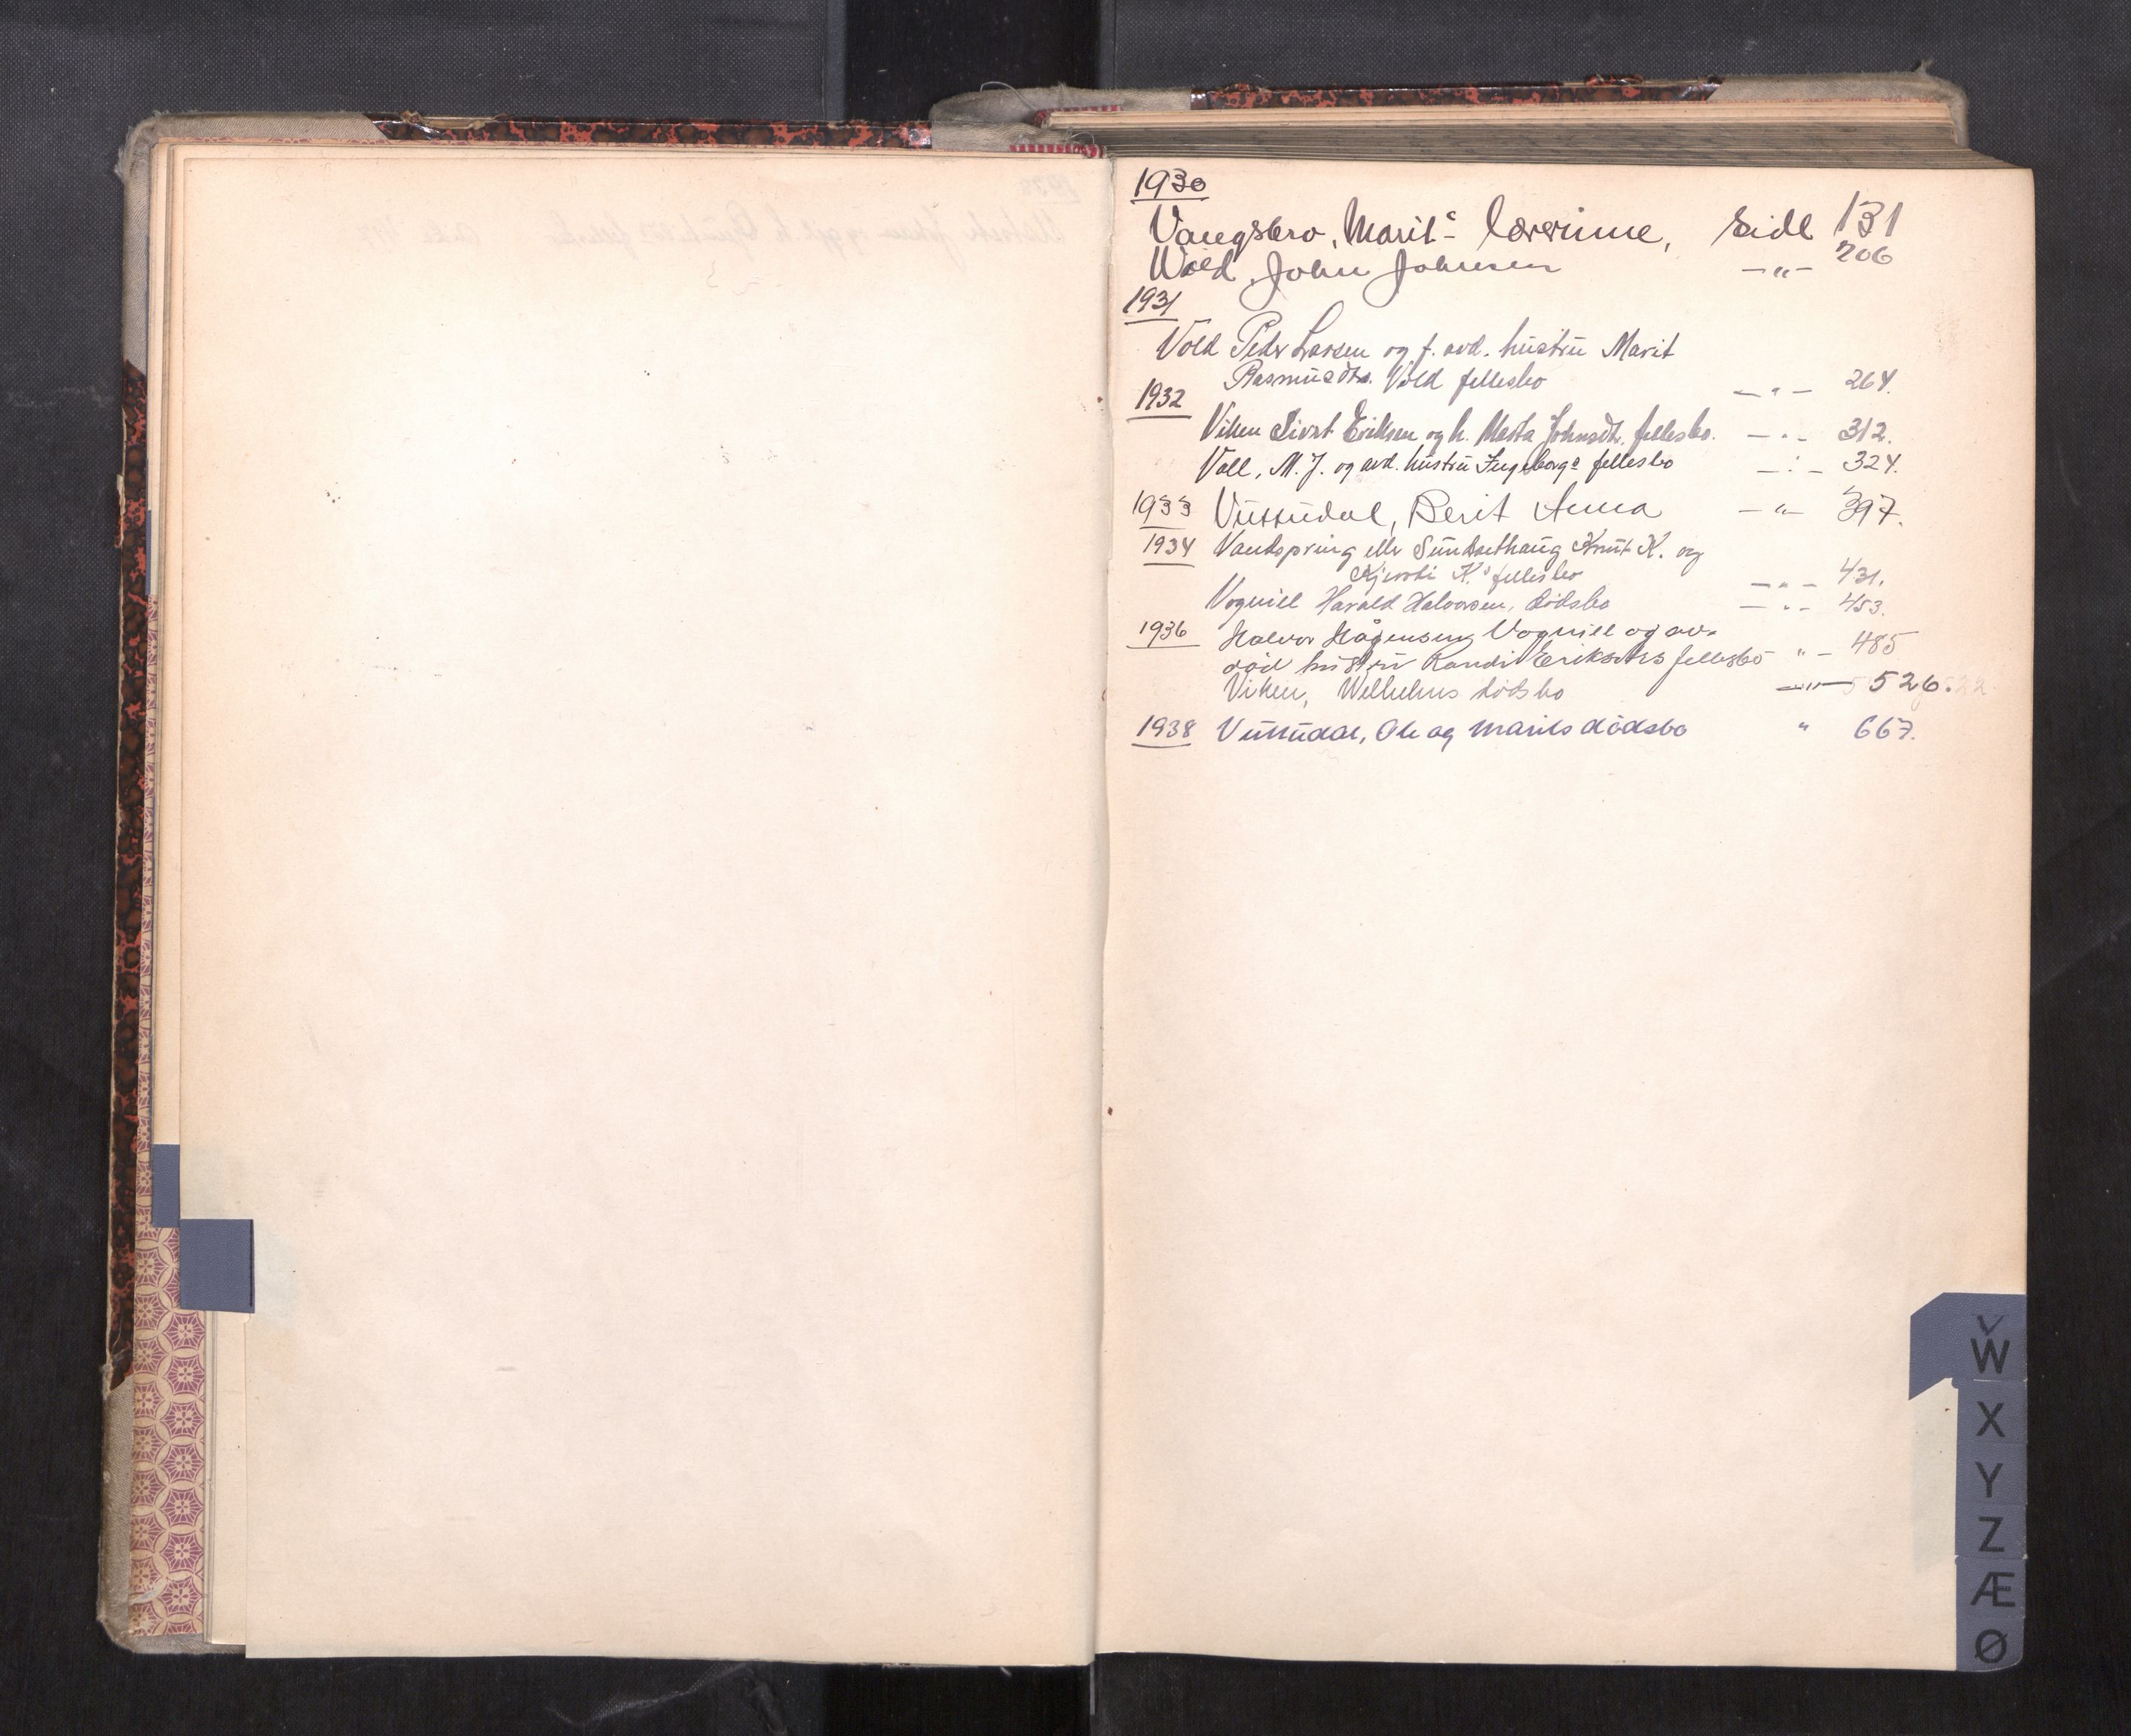 1930
Vangsbro, Marit - lærerinne, Side 131
Wold, John Johnsen -"- 206
1931
Vold Peder Larsen og f. avd. hustru Marit
Rasmusdtr. Vold fellesbo -"- 264.
1932
Viken Sivert Eriksen og h. Marta Johnsdtr. fellesbo. -"- 312.
Voll, M. J. og avd. hustru Ingeborgs fellesbo -"- 324.
1933 Vuttudal, Berit Anna -"- 397.
1934 Vandspring eller Sundsethaug Knut K. og
Kjersti K.s fellesbo -"- 431.
Vognill Harald Halvorsen, dødsbo -"- 453.
1936 Halvor Hågensen Vognill og av-
død hustru Randi Eriksdtrs fellesbo " - 485
Viken, Wilhelms dødsbo -"- 526.
1938 Vuttudal, Ole og Marits dødsbo " 667.
V
W
X
Y
Z
Æ
Ø